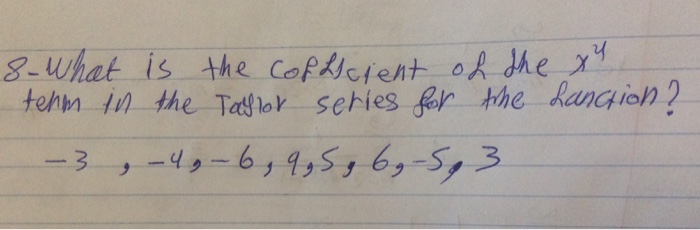 8-What is the coefficient of the x⁴
term in the Taylor series for the function?
-3, -4, -6, 9, 5, 6, -5, 3